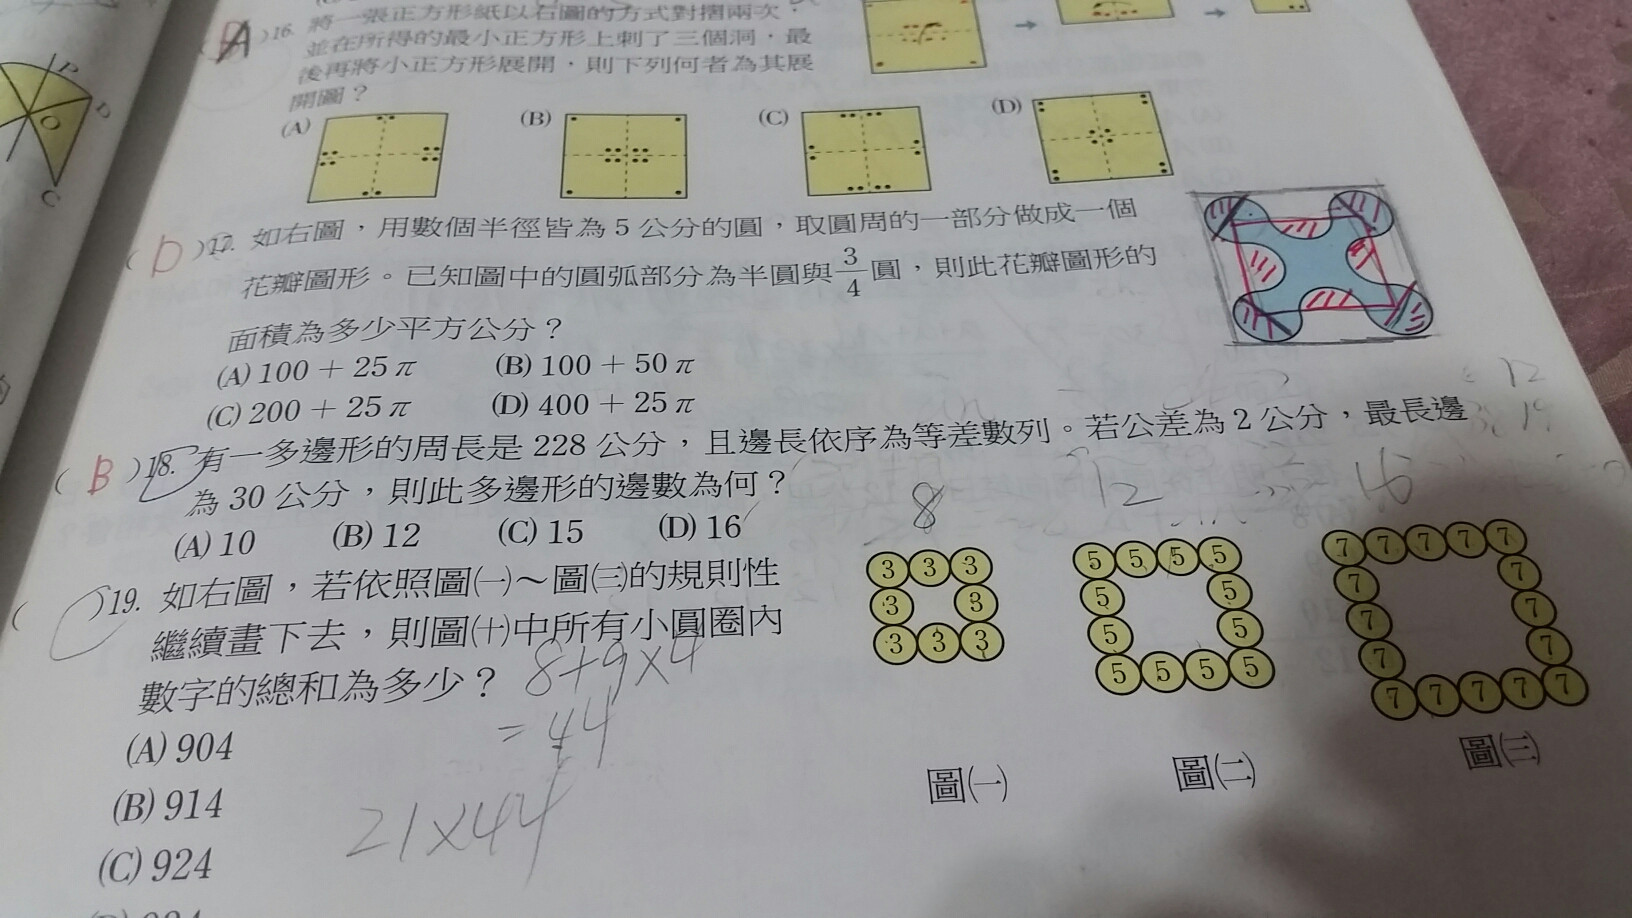 (A)16. 將一張正方形紙以右圖的方式對摺兩次，
並在所得的最小正方形上刺了三個洞，最
後再將小正方形展開，則下列何者為其展
開圖？
(A) (B) (C) (D)
P
D
O
C
(D)17. 如右圖，用數個半徑皆為5公分的圓，取圓周的一部分做成一個
花瓣圖形。已知圖中的圓弧部分為半圓與3/4圓，則此花瓣圖形的
面積為多少平方公分？
(A) 100 + 25π (B) 100 + 50π
(C) 200 + 25π (D) 400 + 25π
12
19
(B)18. 有一多邊形的周長是228公分，且邊長依序為等差數列。若公差為2公分，最長邊
為30公分，則此多邊形的邊數為何？
(A) 10 (B) 12 (C) 15 (D) 16
8 12 16
( )19. 如右圖，若依照圖㈠～圖㈢的規則性
繼續畫下去，則圖㈩中所有小圓圈內
數字的總和為多少？
8+9×4
=44
21×44
(A) 904
(B) 914
(C) 924
3 3 3
3 3
3 3 3
圖㈠
5 5 5 5
5 5
5 5
5 5 5 5
圖㈡
7 7 7 7 7
7 7
7 7
7 7
7 7 7 7 7
圖㈢